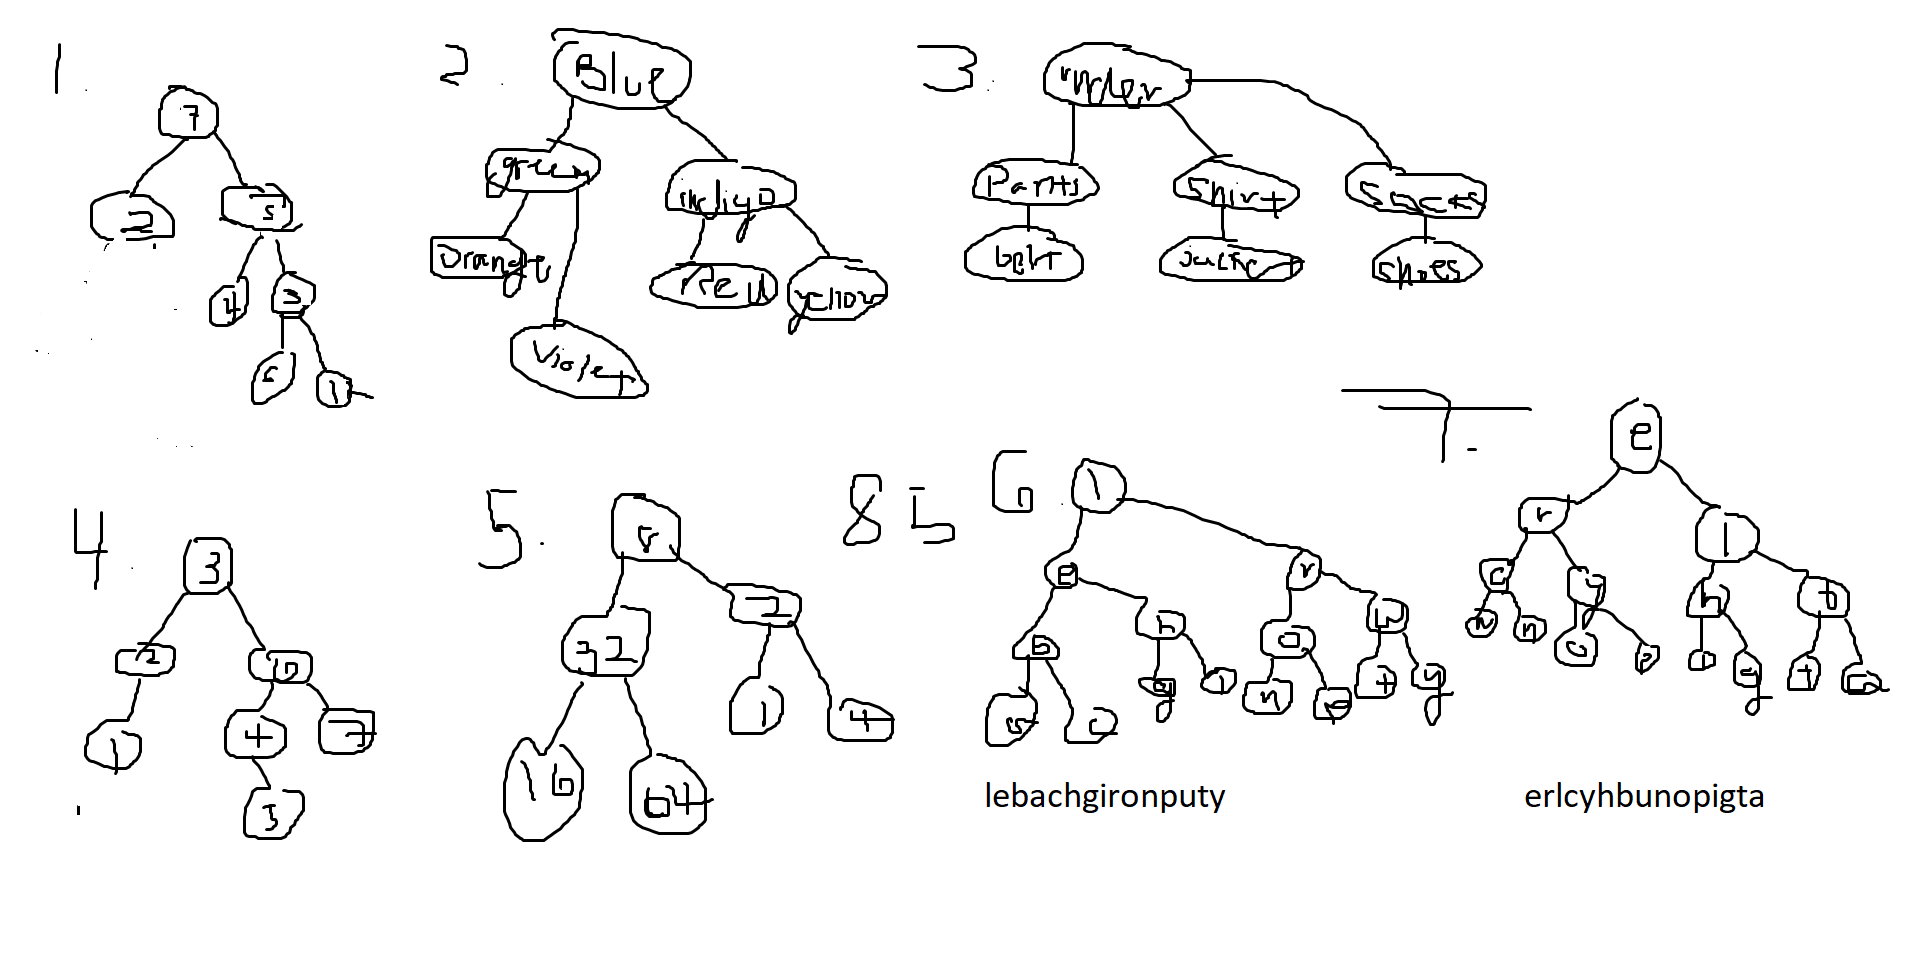 1.
7
2 5
4 3
6 1
2.
Blue
green indigo
Orange Red yellow
Violet
3.
under
Pants Shirt Socks
belt jacket shoes
4.
3
2
1 4 7
5
5.
8
32 2
1 4
16 64
8 5
6.
l
e r
b h o p
a c g i n r t y
lebachgironputy
7.
e
r l
c y h b
u n o p i g t a
erlcyhbunopigta